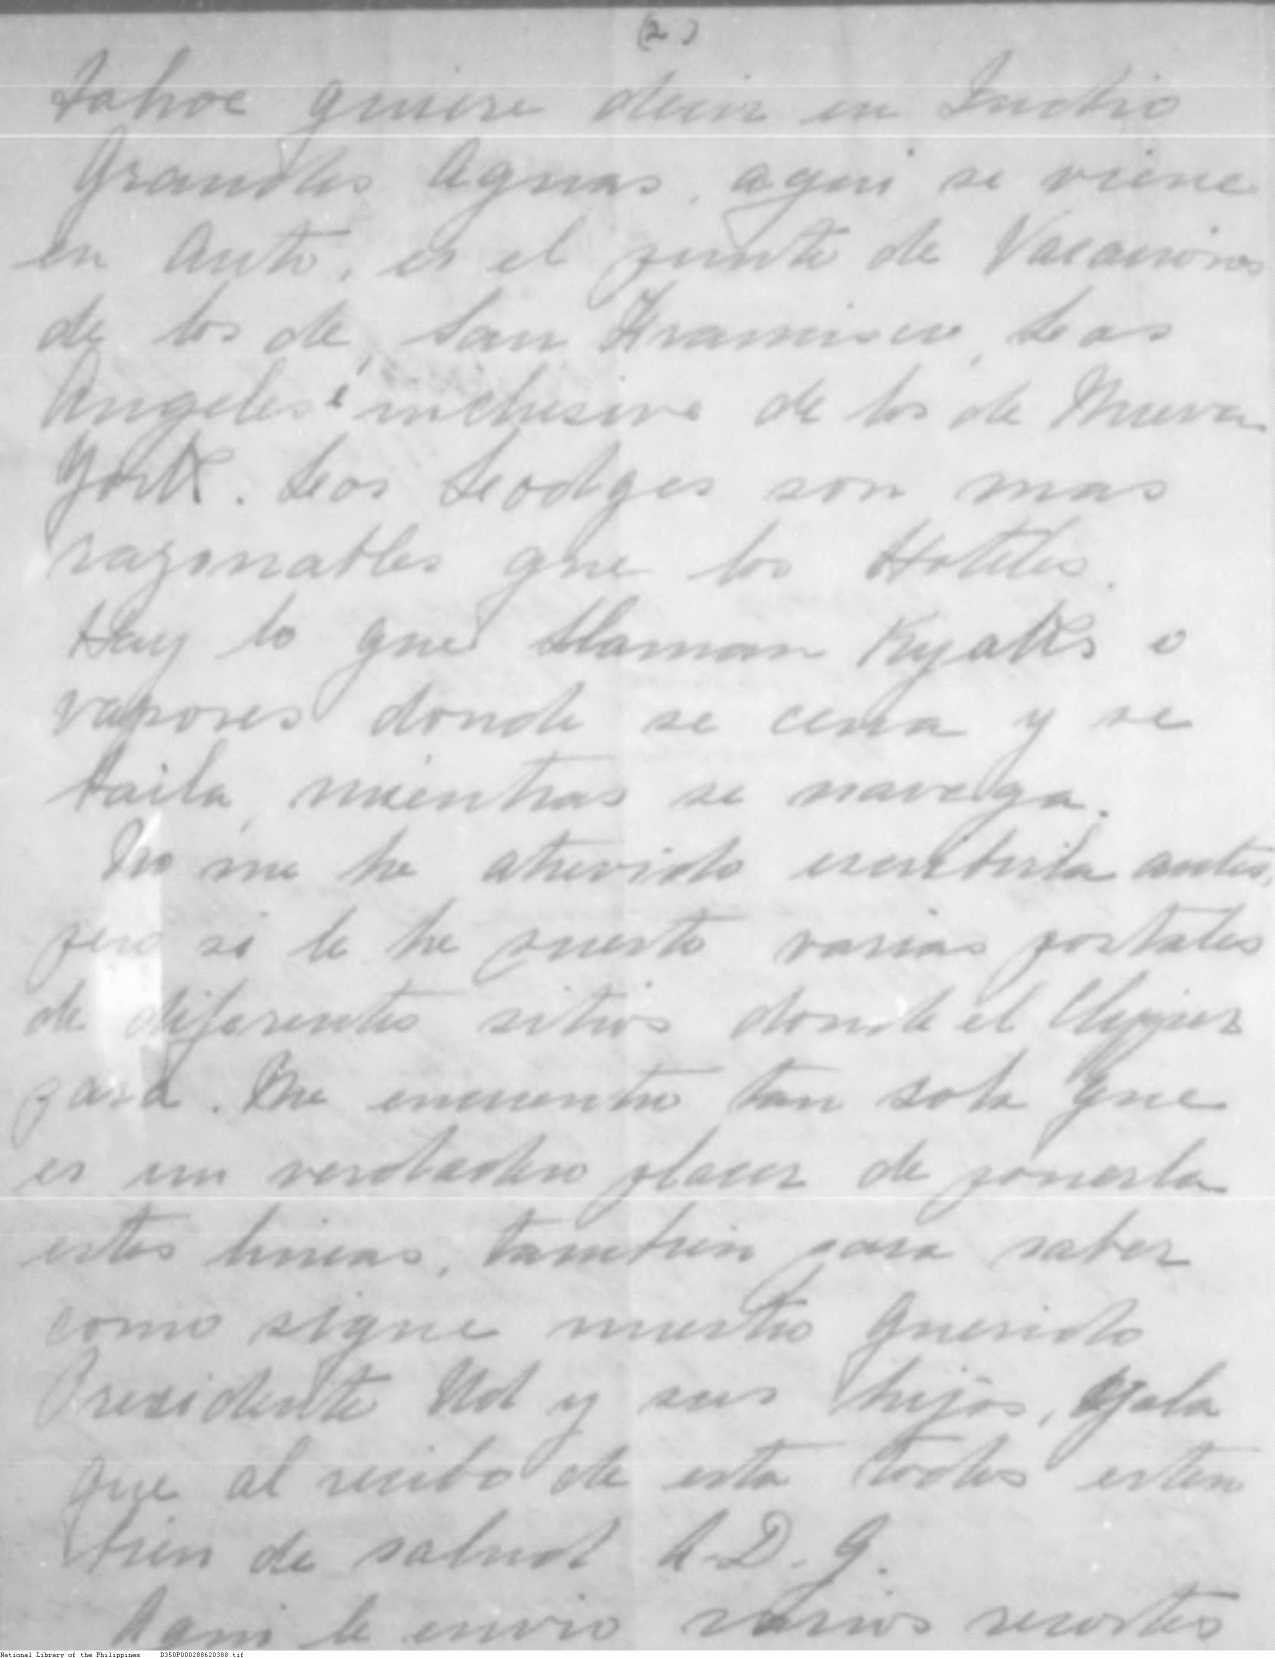 (2)
Tahoe quiere decir en Indio
Grandes Aguas, aqui se viene
en Auto, es el punto de Vacaciones
de los de, San Francisco, Los
Angeles é inclusive de los de Nueva
York. Los Lodges son mas
razonables que los Hoteles.
Hay lo que llaman Kyaks o
vapores donde se cena y se
baila, mientras se navega.
No me he atrevido escribirla antes,
pero si le he puesto varias postales
de diferentes sitios donde el Clipper
para. Me encuentro tan sola que
es un verdadero placer de ponerla
estas lineas, tambien para saber
como sigue nuestro querido
Presidente Ud y sus hijos, Ojala
que al recibo de esta todos esten
bien de salud A.D.G.
Aqui le envio varios recortes
National Library of the Philippines D350P000288620388.tif